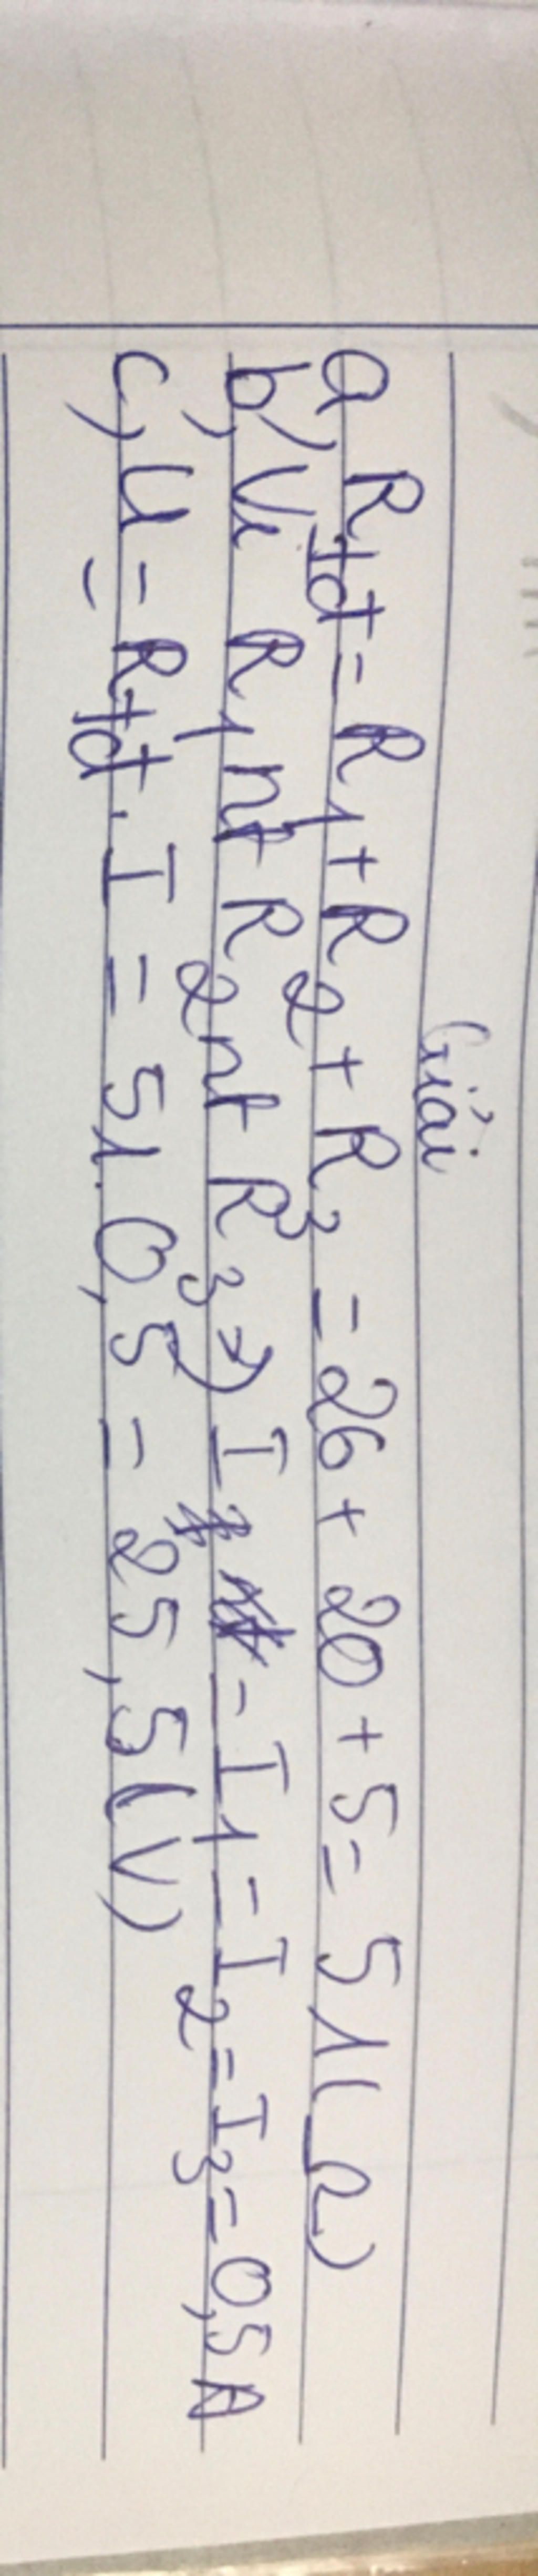 Giải
a, Rtđ = R1 + R2 + R3 = 26 + 20 + 5 = 51(Ω)
b, Vì R1 nt R2 nt R3 => I = I1 = I2 = I3 = 0,5A
c, U = Rtđ. I = 51. 0,5 = 25,5(V)